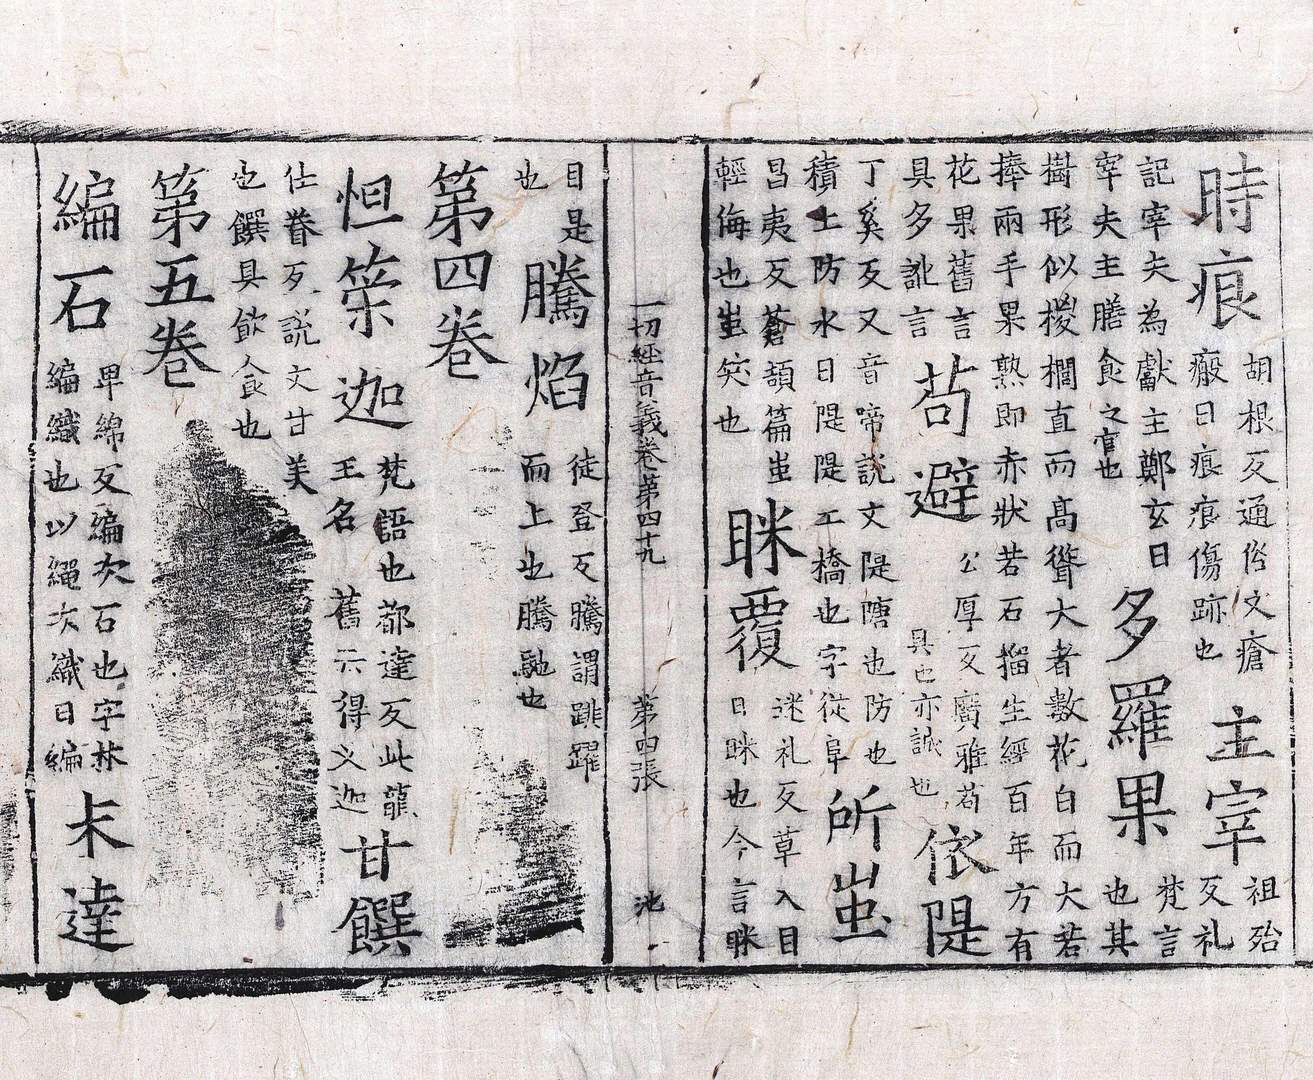 時痕胡根反通俗文瘡瘢曰痕痕傷跡也主宰祖殆反礼
記宰夫為獻主鄭玄曰宰夫主膳食之官也多羅果梵言也其
樹形似椶櫚直而高聳大者數花白而大若捧兩手果熟即赤狀若石榴生經百年方有
花果舊言具多訛言苟避公厚反廣雅苟具也亦誠也依隄
丁奚反又音啼説文隄隌也防也積土防水曰隄隄工橋也字從阜所蚩
昌夷反蒼頡篇蚩輕侮也蚩笑也眯覆迷礼反草入目曰眯也今言眯
一切經音義卷第四十九 第四張 池
目是也騰焰徒登反騰謂跳躍而上也騰馳也
第四卷
怛筞迦梵語也都達反此龍王名舊云得叉迦甘饌
仕眷反説文甘美也饌具飲食也
第五卷
編石卑綿反編次石也字林編織也以繩次織曰編未達